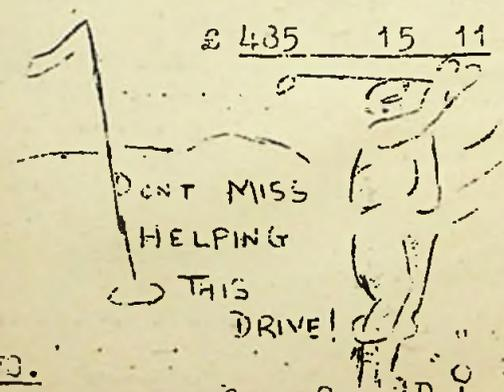 £ 485 15 11
DONT MISS
HELPING
THIS
DRIVE!